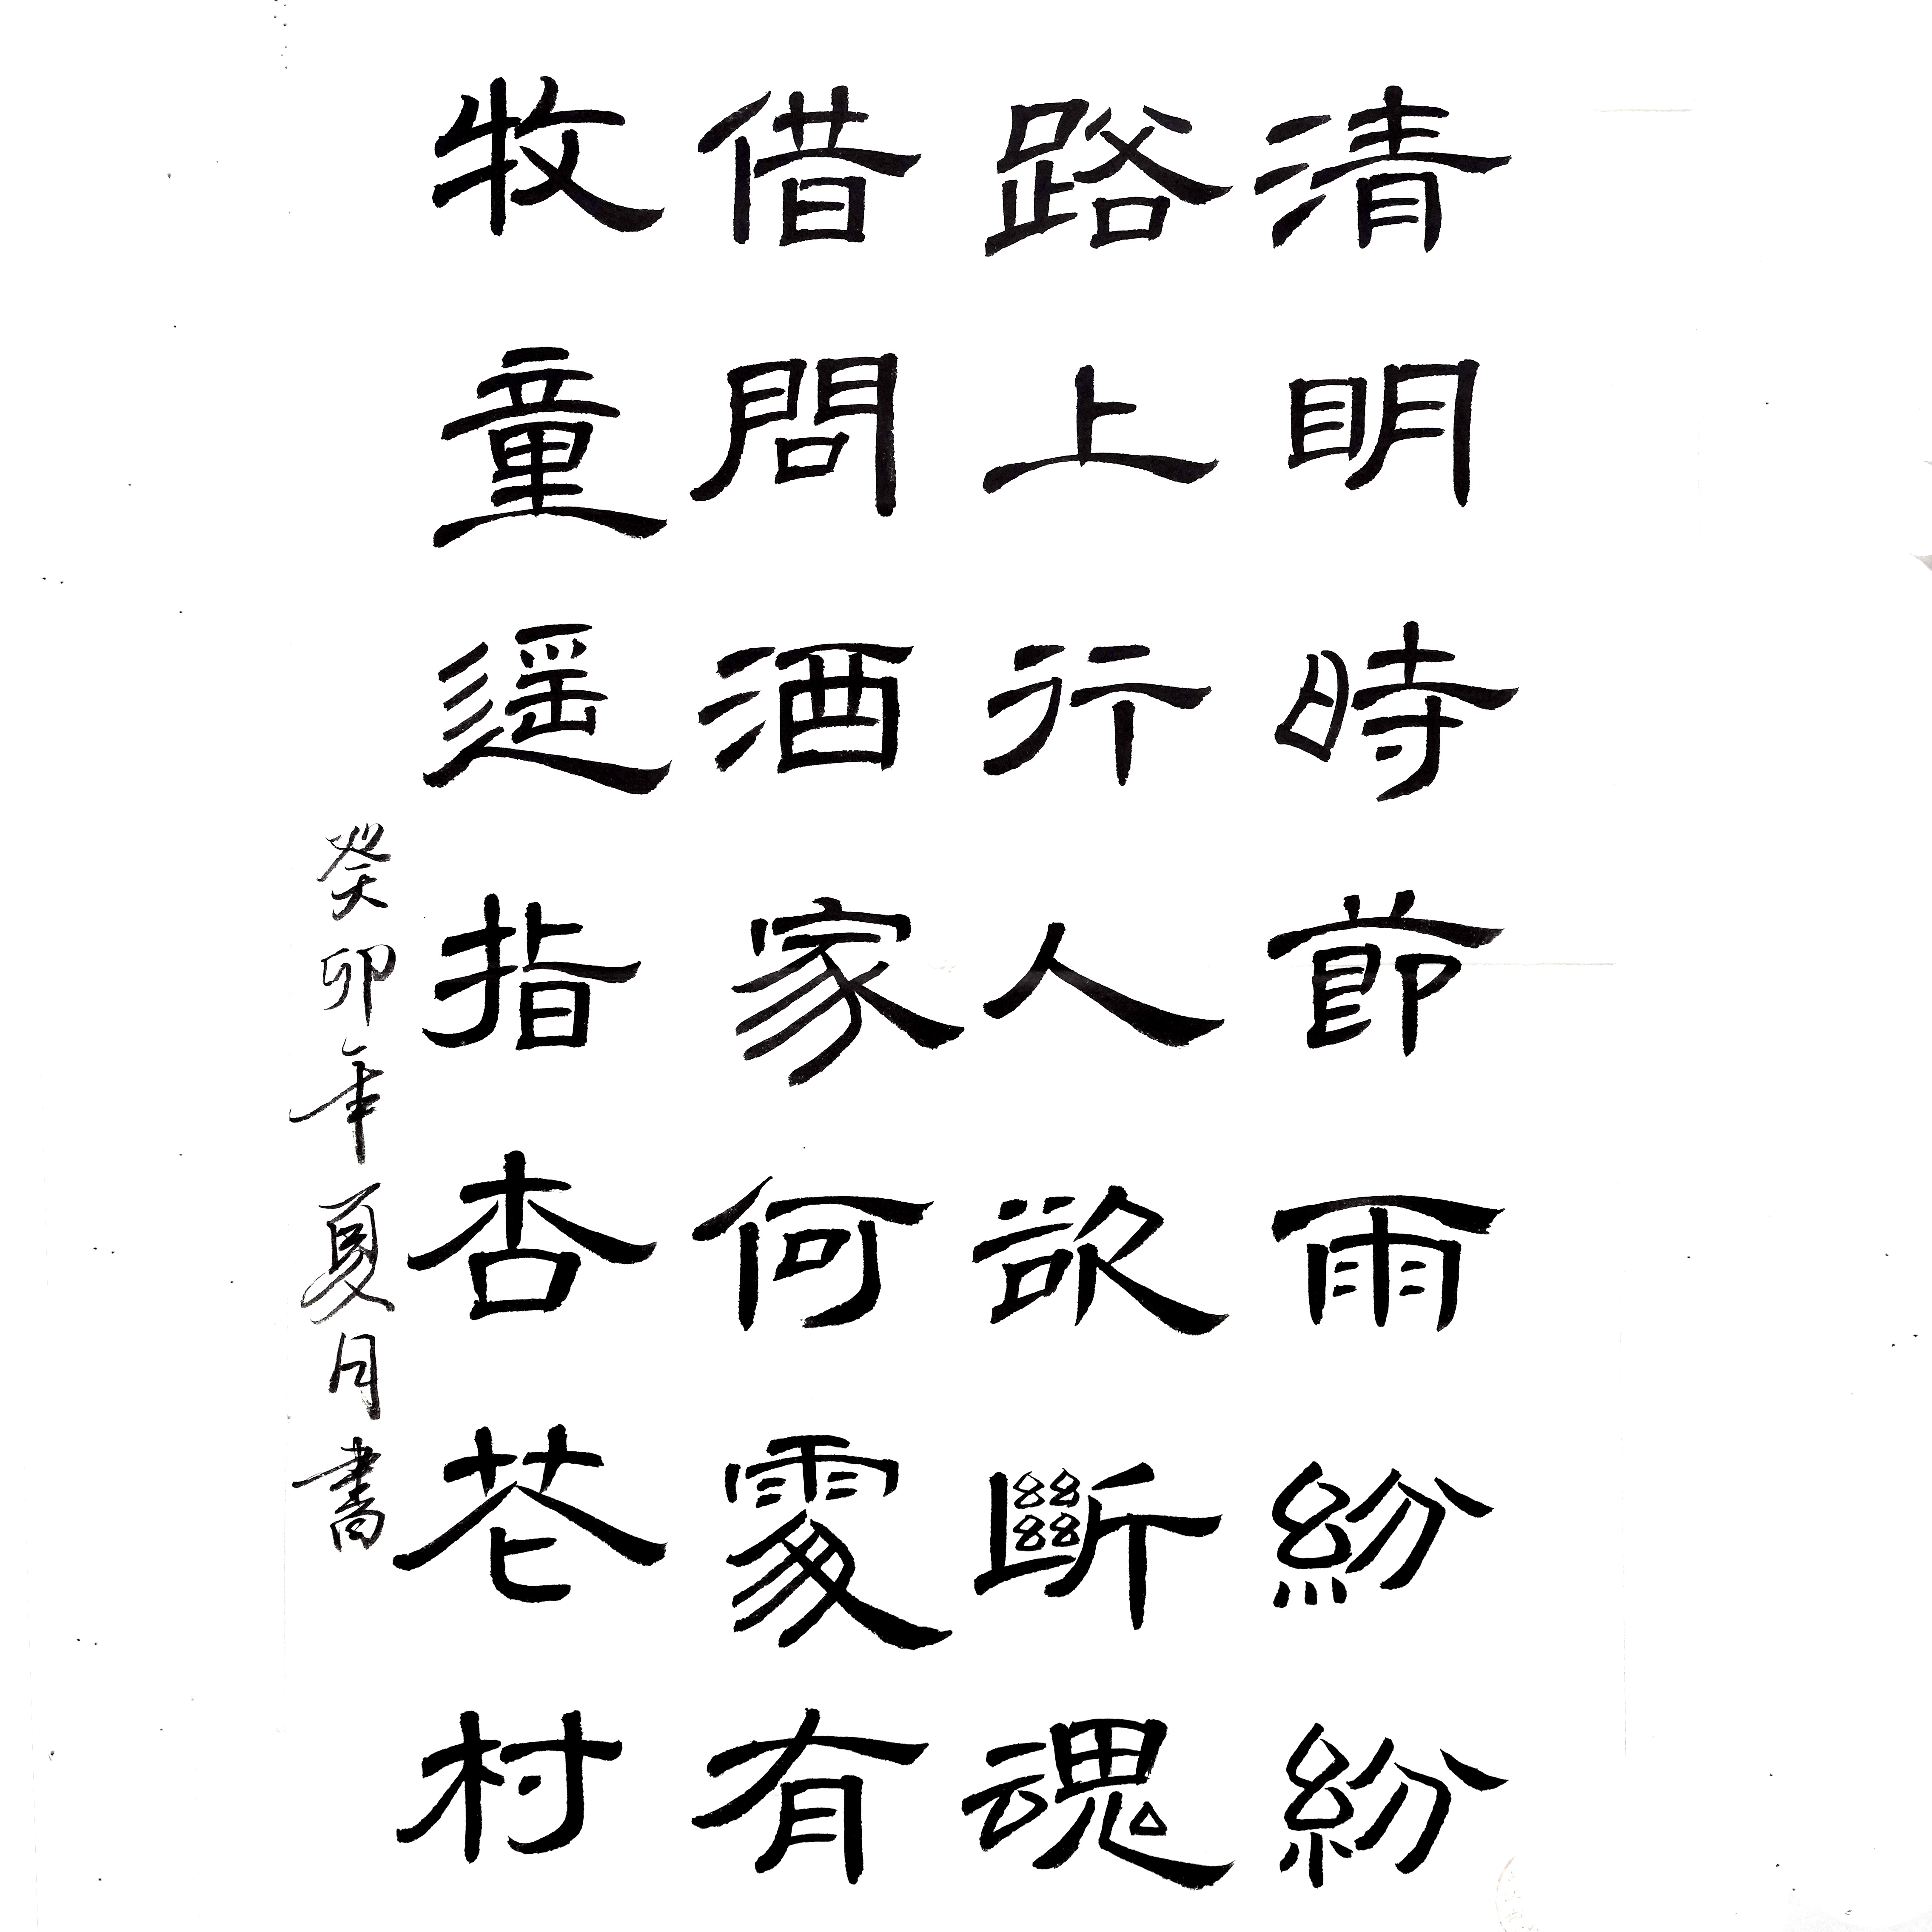 清明時節雨紛紛
路上行人欲斷魂
借問酒家何處有
牧童遥指杏花村
癸卯年夏月書